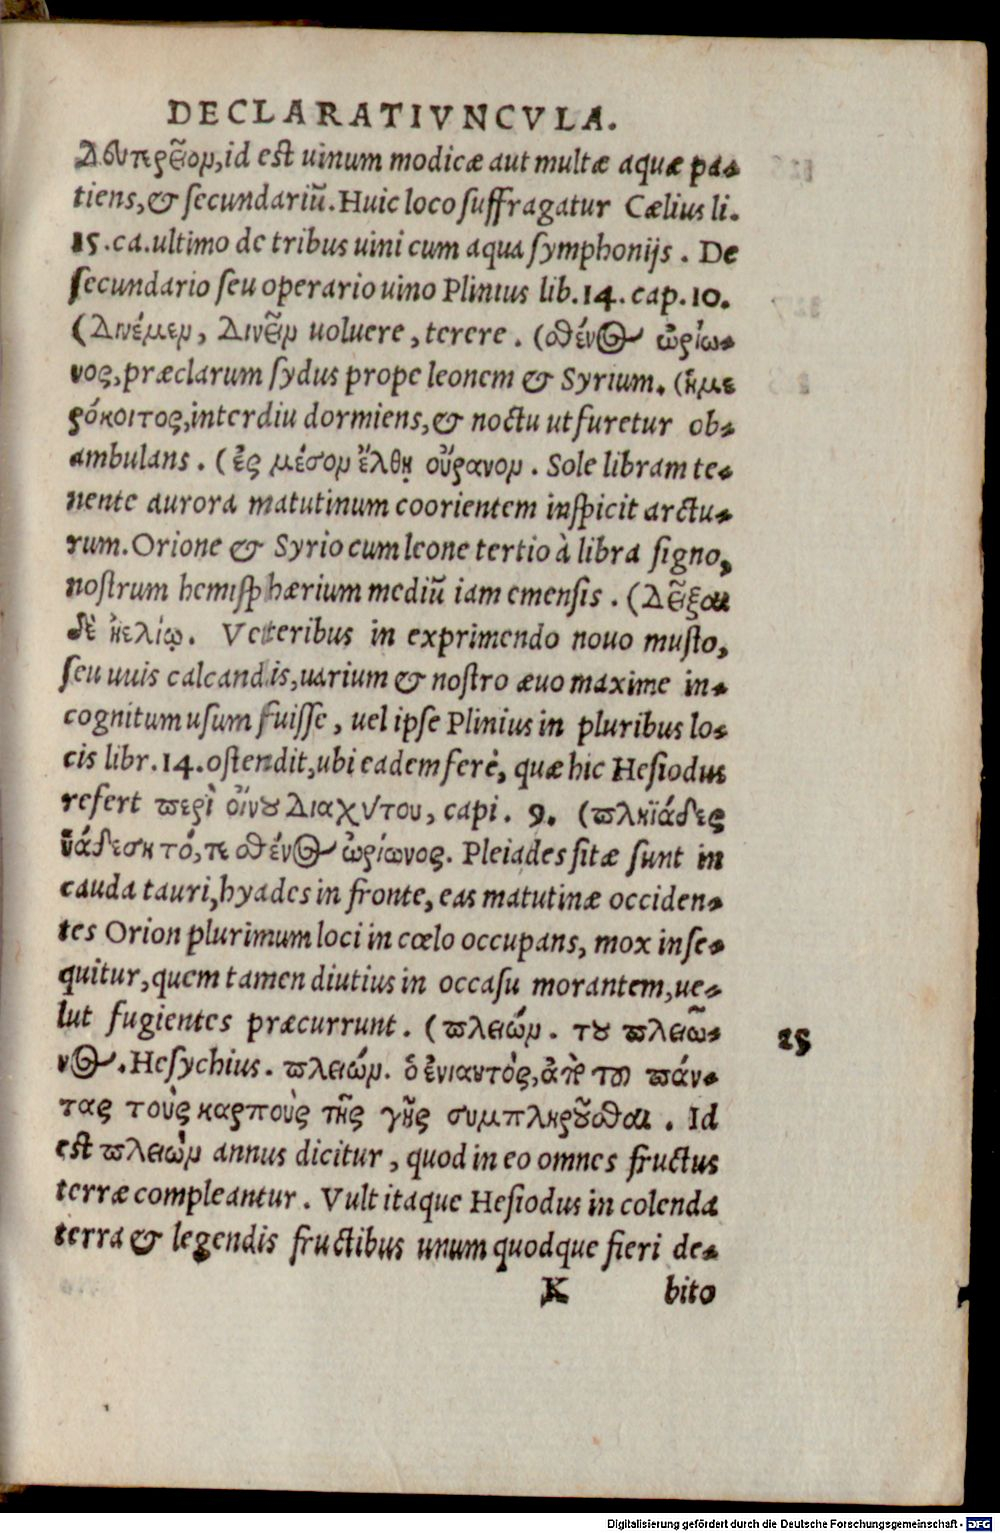 DECLARATIVNCVLA.
Δευτερεῖον, id est uinum modicæ aut multæ aquæ pa-
tiens, & secundariũ. Huic loco suffragatur Cælius li.
15. ca. ultimo de tribus uini cum aqua symphonijs. De
secundario seu operario uino Plinius lib. 14. cap. 10.
(Δινέμεν, Δινεῖν uoluere, terere. (σθένος ὠρίω-
νος, præclarum sydus prope leonem & Syrium. (ἡμε
ρόκοιτος, interdiu dormiens, & noctu ut furetur ob-
ambulans. (ἐς μέσον ἔλθῃ οὔρανον. Sole libram te-
nente aurora matutinum coorientem inspicit arctu-
rum. Orione & Syrio cum leone tertio à libra signo,
nostrum hemisphærium mediũ iam emensis. (Δεῖξαι
δὲ ἠελίῳ. Veteribus in exprimendo nouo musto,
seu uuis calcandis, uarium & nostro æuo maxime in-
cognitum usum fuisse, uel ipse Plinius in pluribus lo-
cis libr. 14. ostendit, ubi eadem ferè, quæ hic Hesiodus
refert περὶ οἴνου Διαχύτου, capi. 9. (πληϊάδες
ὑάδεσητό, τε σθένος ὠρίωνος. Pleiades sitæ sunt in
cauda tauri, hyades in fronte, eas matutinæ occiden-
tes Orion plurimum loci in cœlo occupans, mox inse-
quitur, quem tamen diutius in occasu morantem, ue-
lut fugientes præcurrunt. (πλειών. του πλειῶ-
νος. Hesychius. πλειών. ὁ ἐνιαυτὸς, ἀπὸ του πάν-
τας τοὺς καρποὺς τῆς γῆς συμπληροῦσθαι. Id
est πλειὼν annus dicitur, quod in eo omnes fructus
terræ compleantur. Vult itaque Hesiodus in colenda
terra & legendis fructibus unum quodque fieri de-
K bito
25
Digitalisierung gefördert durch die Deutsche Forschungsgemeinschaft - DFG